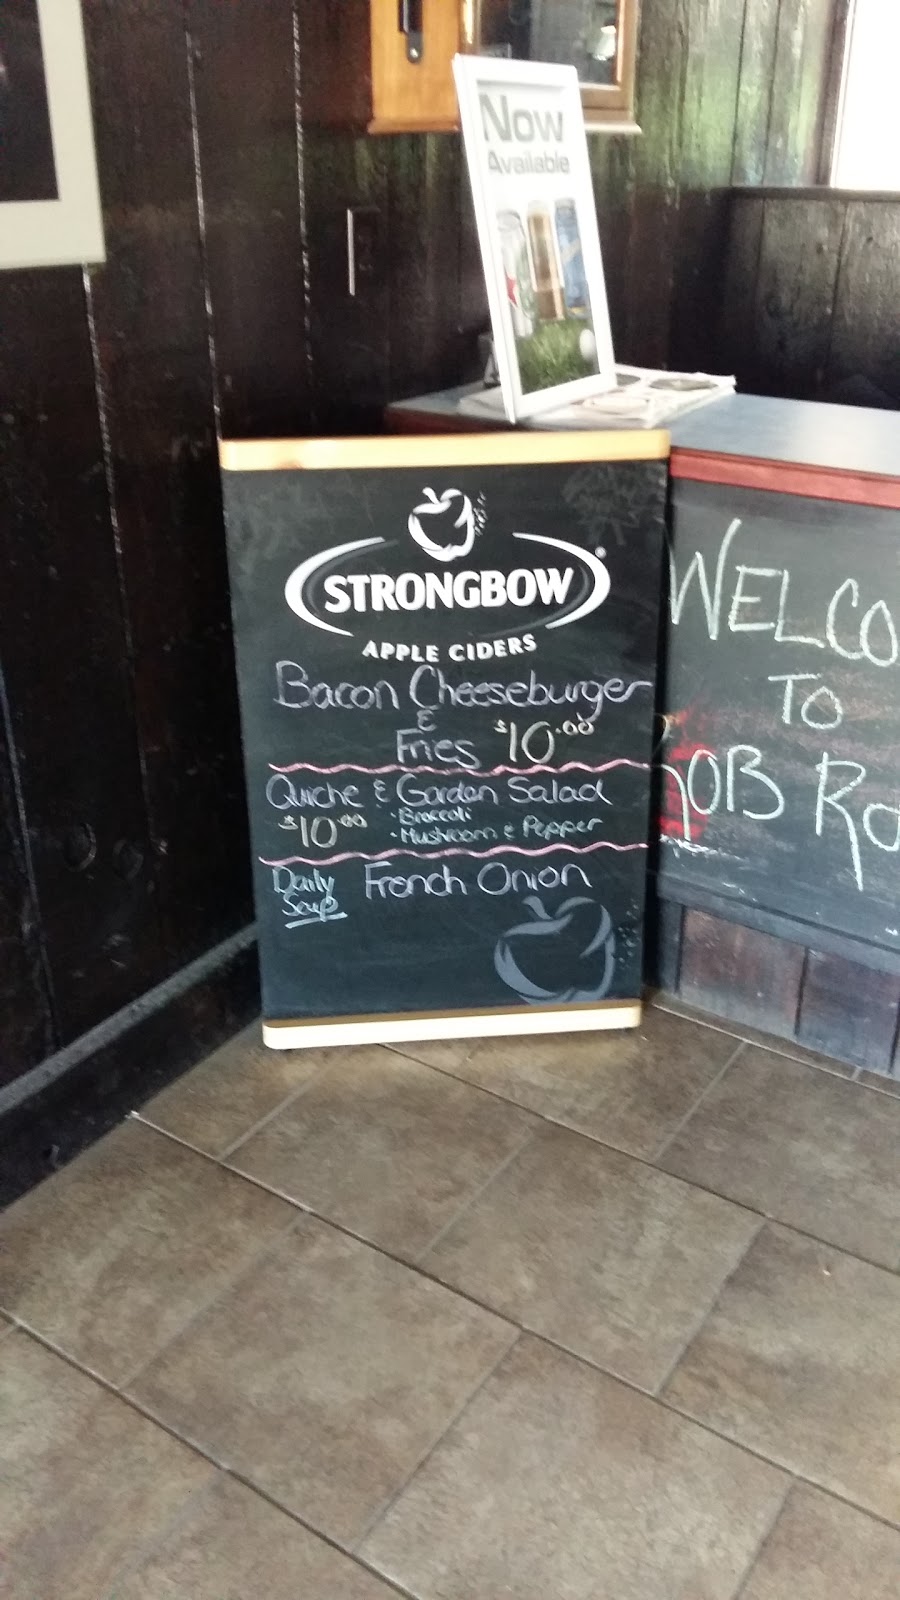 Now
Available
STRONGBOW
APPLE CIDERS
Bacon Cheeseburger
&
Fries $10.00
Quiche & Garden Salad
$10.00
• Broccoli
• Mushroom & Pepper
Daily
Soup
French Onion
WELCO
TO
OB RO